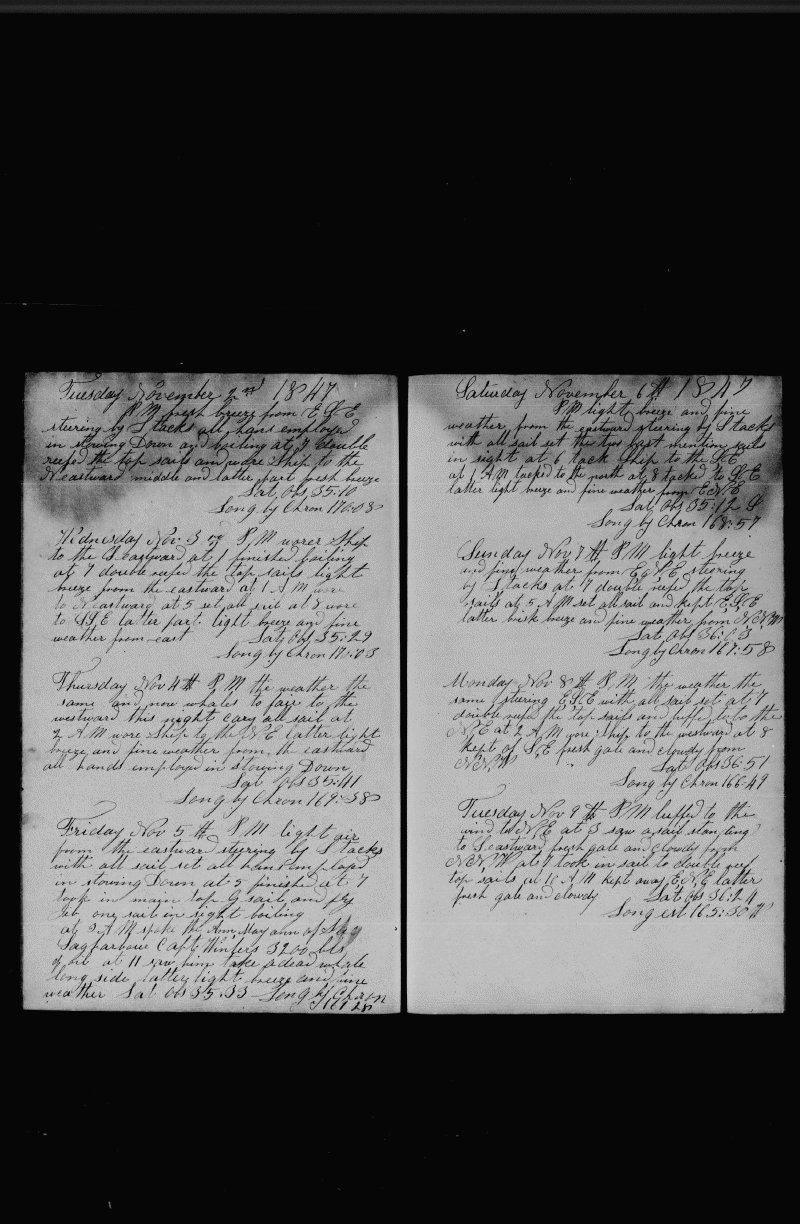 Tuesday November 2nd 1847
P M fresh breeze from E S E
steering by S tacks all hans employed
in stowing Down and boiling at 7 double
reefed the top sails and wore Ship to the
N eastward middle and latter part fresh breeze
Lat Obs 35:10
Long by Chron 170:08
Wednesday Nov 3 P M worer Ship
to the S eastward at 1 finished boiling
at 7 double reefed the top sails light
breeze from the eastward at 1 A M wore
to N eastward at 5 set all sail at 8 wore
to S S E latter part light breeze and fine
weather from east Lat Obs 35:29
Long by Chron 170:03
Thursday Nov 4th P M the weather the
same and now whales to fair to the
westward this night cary all sail at
2 A M wore Ship to the N E latter light
breeze and fine weather from the eastward
all hands employed in Stowing Down
Lat Obs 35:41
Long by Chron 169:38
Friday Nov 5th P M light air
from the eastward steering by S tacks
with all sail set all hans employed
in stowing Down at 5 finished at 7
took in main top G sail and fly
at one sail in sight boiling
at 9 A M spoke the Ann Mary ann of Sag
Sagharbour Capt Winters 3200 bls
of oil at 11 saw him take a dead whale
long side latter light breeze and fine
weather Lat Obs 35:33 Long by Chron
169 28
Saturday November 6th 1847
P M light breeze and fine
weather from the eastward steering by S tacks
with all sail set the two last mention sails
in sight at 6 tack Ship to the S E
at 1 A M tacked to the north at 8 tacked to S E
latter light breeze and fine weather from E N E
Lat Obs 35:12 S
Long by Chron 168:57
Sunday Nov 7th P M light breeze
and fine weather from E steering
by S tacks at 7 double reefed the top
sails at 5 A M set all sail and kept E S E
latter brisk breeze and fine weather from N N W
Lat Obs 36:03
Long by Chron 167:58
Monday Nov 8th P M the weather the
same steering E S E with all sail set at 7
double reefed the top sails and luffed to to the
N E at 2 A M wore Ship to the westward at 8
kept of S E fresh gale and clowdy from
N N W Lat Obs 36:51
Long by Chron 166:49
Tuesday Nov 9th P M luffed to the
wind to N E at 3 saw a sail standing
to S eastward fresh gale and clowdy from
N N W at 7 took in sail to double reef
top sails at 10 A M kept away E N E latter
fresh gale and clowdy Lat Obs 36:24
Long est 165:30 W